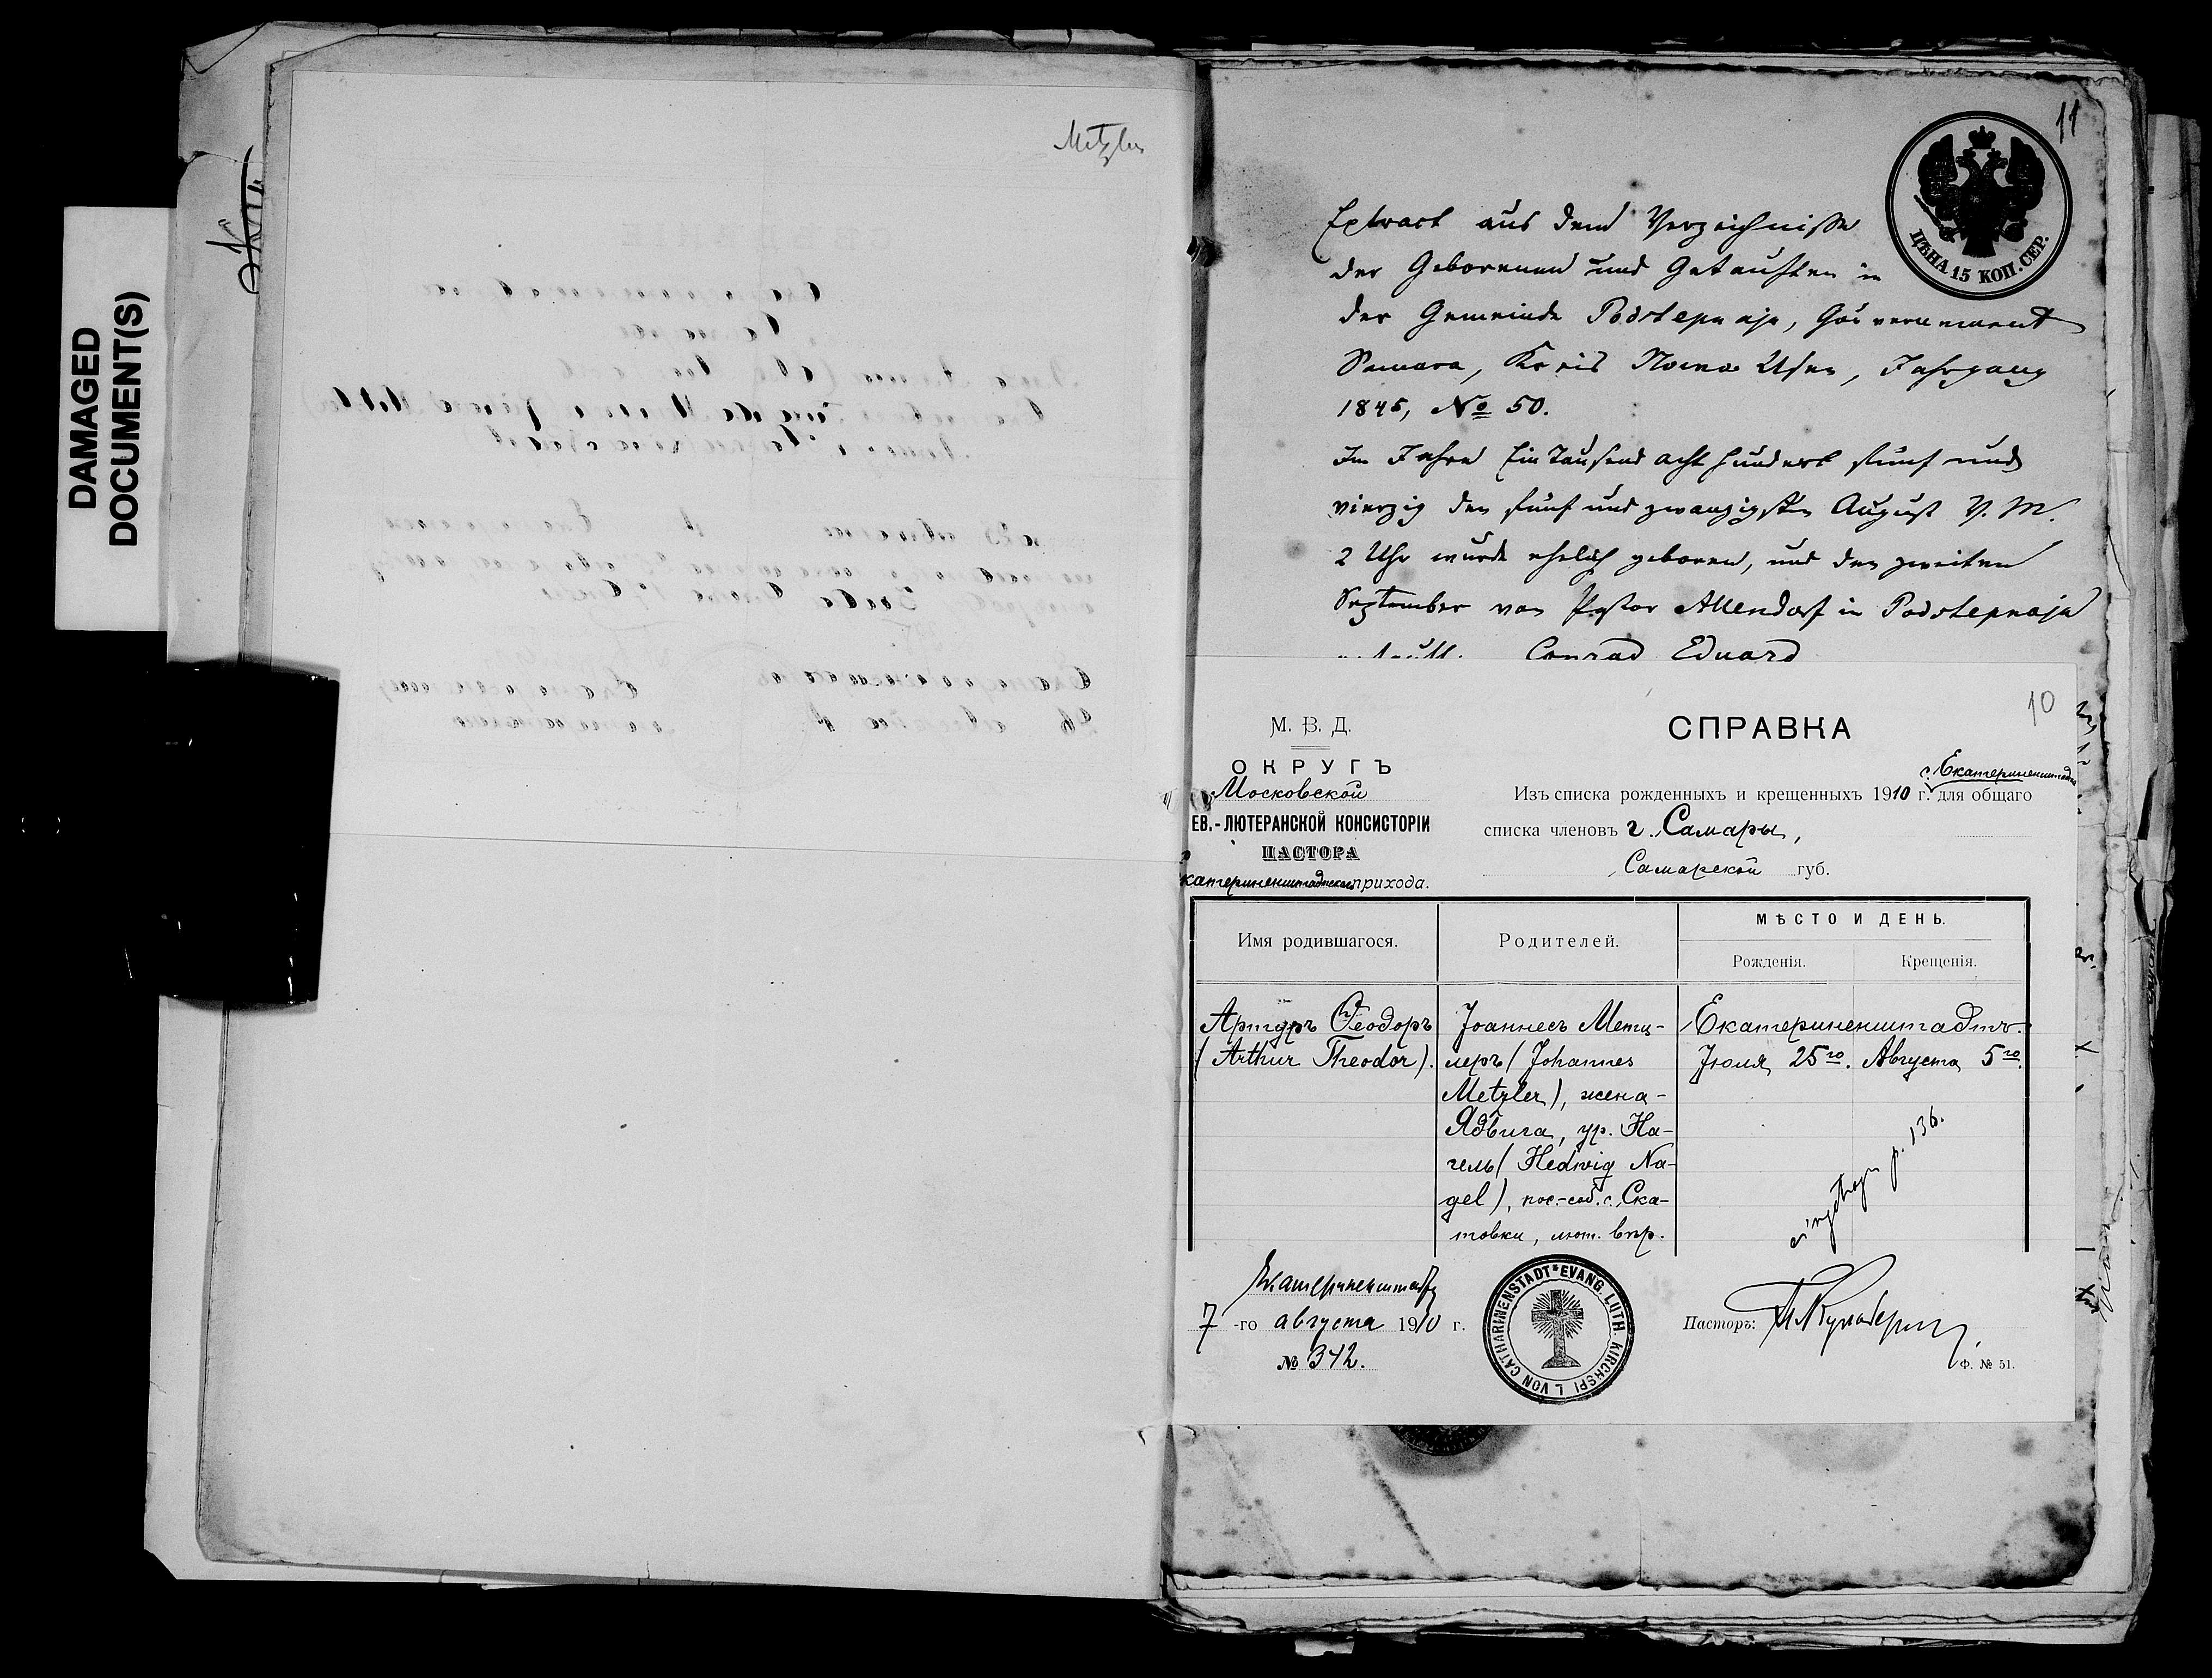 DAMAGED
DOCUMENT(S)
Metzler
11
Extract aus dem Verzeichnisse
der Geborenen und Getauften in
der Gemeinde Podstepnaja, Gouvernement
Samara, Kreis Nowo Usen, Jahrgang
1845, No 50.
Im Jahre Ein Tausend acht hundert fünf und
vierzig den fünf und zwanzigsten August V. M.
2 Uhr wurde ehelich geboren, und den zweiten
September von Pastor Allendorf in Podstepnaja
Conrad Eduard
ЦѢНА 15 КОП. СЕР.
10
М. В. Д.
ОКРУГЪ
Московской
ЕВ.-ЛЮТЕРАНСКОЙ КОНСИСТОРІИ
ПАСТОРА
катериненштадтскаго прихода.
СПРАВКА
с. Екатериненштадта
Изъ списка рожденныхъ и крещенныхъ 1910 г. для общаго
списка членовъ г. Самары,
Самарской губ.
Имя родившагося.
Родителей.
МѢСТО И ДЕНЬ.
Рожденія.
Крещенія.
Артуръ Ѳеодоръ
(Arthur Theodor).
Іоаннесъ Метц-
леръ (Johannes
Metzler), жена-
Ядвига, ур. На-
гель (Hedwig Na-
gel), пос.-соб. с. Ска-
товки, лют. вѣр.
Екатериненштадтъ.
Іюля 25го. Августа 5го.
p. 136.
Екатериненштадтъ
7 -го августа 1910 г.
№ 342.
VON CATHARINENSTADT * EVANG. LUTH. KIRCHSPI L
Пасторъ:
Ф. № 51.